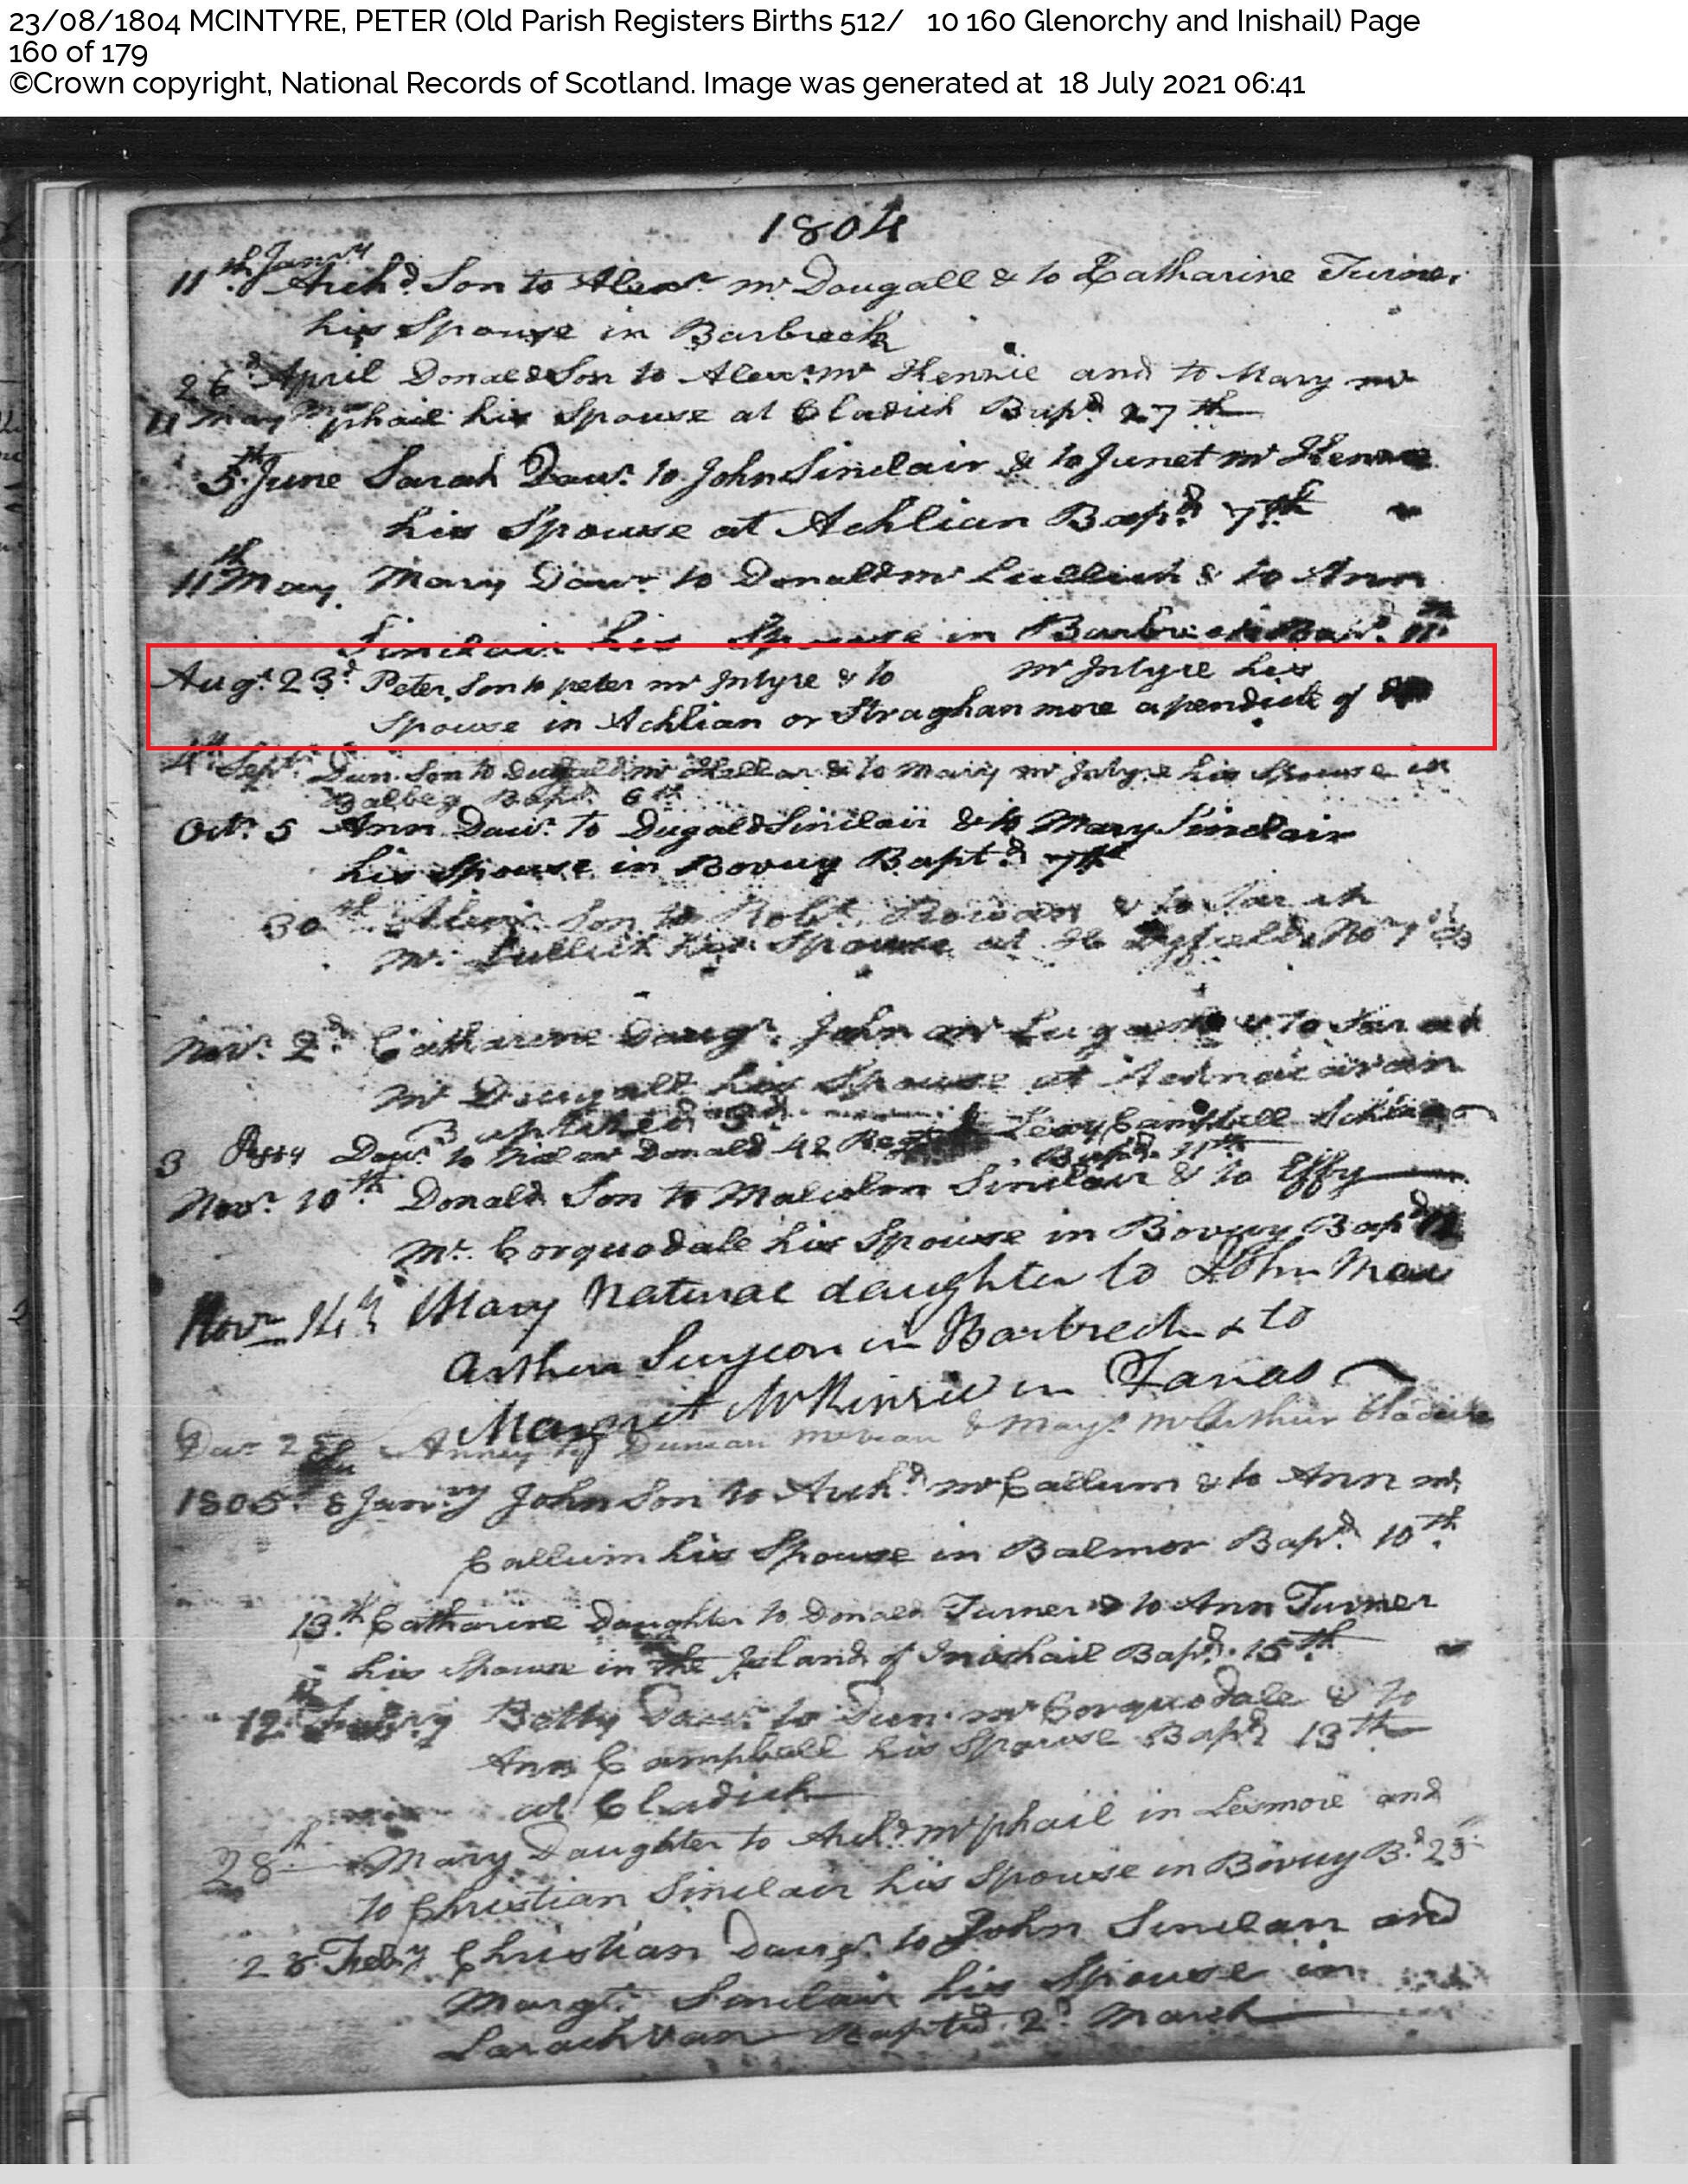 23/08/1804 MCINTYRE, PETER (Old Parish Registers Births 512/ 10 160 Glenorchy and Inishail) Page
160 of 179
©Crown copyright, National Records of Scotland. Image was generated at 18 July 2021 06:41
1804
11th Janry
Archd Son to Alexr mc Dougall & to Catharine Turner
his Spouse in Barbreck
26 April Donald Son to Alexr mc Kenzie and to Mary mc
11 May phail his Spouse at Cladich Bapd 27th
5th June Sarah Dawr to John Sinclair & to Janet mc
his Spouse at Achlian Bapd 7th
11th May. Mary Dawr to Donald mc Lullich & to Ann
Sinclair his Spouse in Barbreck Bapd 11
Augt 23d Peter Son to peter mc Intyre & to mc Intyre his
Spouse in Achlian or Straghanmore apendicle of
4th Septr Dun. Son to Dugald mc Kellar & to Mary mc Intyre his Spouse in
Balbeg Bapd 6th
Octr 5 Ann Dawr to Dugald Sinclair & to Mary Sinclair
his Spouse in Bovuy Baptd 7th
30th Alexr Son to Robt Rowan & to Sarah
mc Lullich his Spouse at
Novr 2d Catharine Daugr John mc & to Sarah
mc Dougall his Spouse at
Baptized 3d
3 Dawr to mc Donald 42 Regt Campbell
Bapd 11th
Novr 10th Donald Son to Malcolm Sinclair & to Effy
Mc Corquodale his Spouse in Bovuy Bapd
Novr 14th Mary Natural daughter to John Mac
Arthur Surgeon in Barbreck & to
Margret McKinzie in Tanas
25 Duncan & Mary McArthur Cladich
1805 8 Janry John Son to Archd mc Callum & to Ann mc
Callum his Spouse in Balmor Bapd 10th
13th Catharine Daughter to Donald Turner & to Ann Turner
his Spouse in the Island of Inishail Bapd 15th
12 Febry Betty Dawr to Dun. mc Corquodale & to
Ann Campbell his Spouse Bapd 13th
at Cladich
28th Mary Daughter to Archd mc phail in Lismore and
to Christian Sinclair his Spouse in Bovuy Bd 25
28 Feby Christian Daugr to John Sinclair and
Margt Sinclair his Spouse in
Larachvan Baptd 2d March